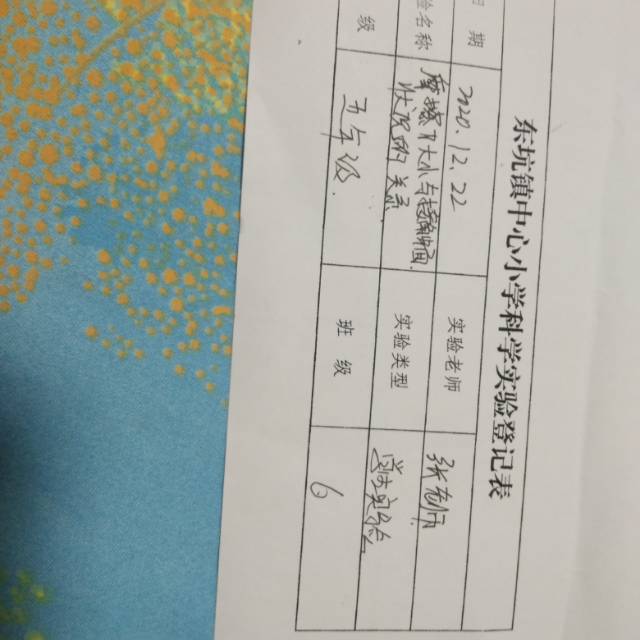 东坑镇中心小学科学实验登记表
日 期 2020.12.22 实验老师 张老师
验名称 摩擦力大小与接触面
状况的关系 实验类型 学生实验
级 五年级 班 级 6